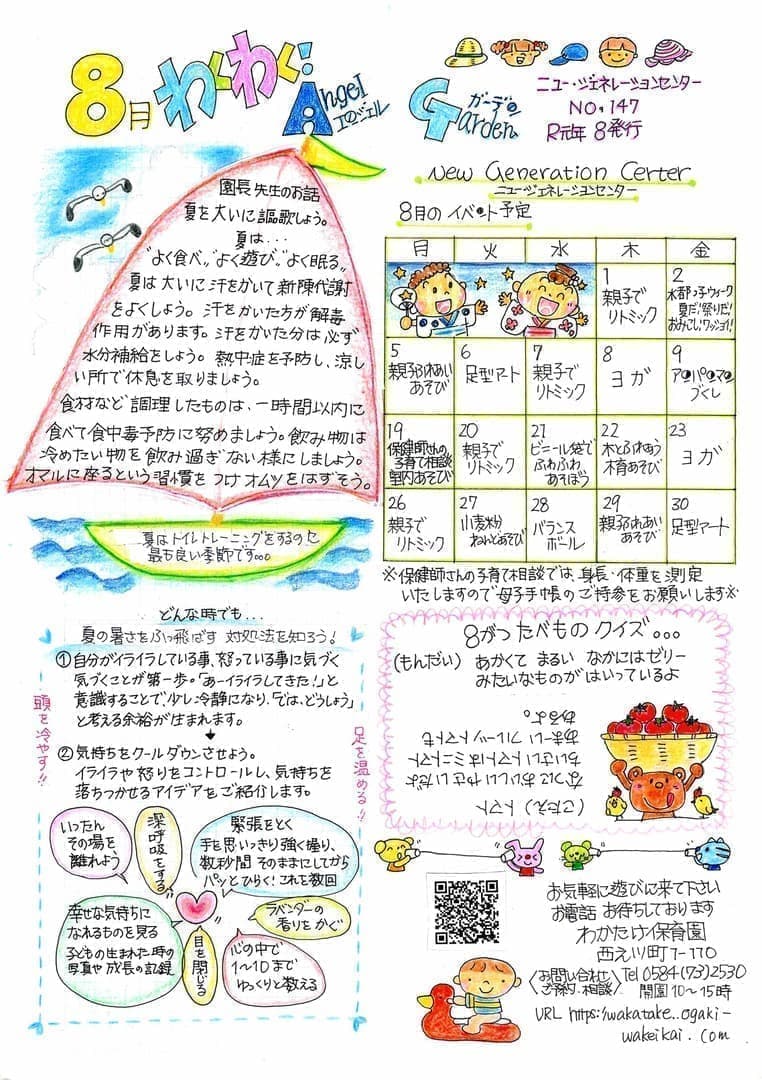 8月 わくわく!
Angel
エンジェル
ガーデン
Garden
ニュー・ジェネレーションセンター
NO.147
R元年 8発行
New Generation Center
ニュージェネレーションセンター
園長先生のお話
夏を大いに謳歌しよう。
夏は...
“よく食べ”“よく遊び”“よく眠る”
夏は大いに汗をかいて新陳代謝
をよくしよう。汗をかいた方が解毒
作用があります。汗をかいた分は必ず
水分補給をしよう。熱中症を予防し、涼し
い所で休息を取りましょう。
食材など調理したものは、一時間以内に
食べて食中毒予防に努めましょう。飲み物は
冷めたい物を飲み過ぎない様にしましょう。
オマルに座るという習慣をつけオムツをはずそう。
夏はトイレトレーニングをするのに
最も良い季節です。。。
8月のイベント予定
月 火 水 木 金
1 親子でリトミック
2 水都っ子ウィーク 夏だ!祭りだ! おみこしワッショイ!
5 親子ふれあいあそび
6 足型アート
7 親子でリトミック
8 ヨガ
9 ア●パ●マ●づくし
19 保健師さんの子育て相談 室内あそび
20 親子でリトミック
21 ビニール袋でふわふわあそぼう
22 木とふれあう木育あそび
23 ヨガ
26 親子でリトミック
27 小麦粉ねんどあそび
28 バランスボール
29 親子ふれあいあそび
30 足型アート
※保健師さんの子育て相談では、身長・体重を測定
いたしますので母子手帳のご持参をお願いします※
どんな時でも...
夏の暑さをぶっ飛ばす 対処法を知ろう!
①自分がイライラしている事、怒っている事に気づく
気づくことが第一歩。「あーイライラしてきた!」と
意識することで、少し冷静になり、「では、どうしよう」
と考える余裕が生まれます。
②気持ちをクールダウンさせよう。
イライラや怒りをコントロールし、気持ちを
落ちつかせるアイデアをご紹介します。
頭を冷やす!!
足を温める!!
いったん
その場を
離れよう
深呼吸をする
緊張をとく
手を思いっきり強く握り、
数秒間そのままにしてから
パッとひらく!これを数回
幸せな気持ちに
なれるものを見る
子どもの生まれた時の
写真や成長の記録
目を閉じる
ラベンダーの
香りをかぐ
心の中で
1~10まで
ゆっくりと数える
8がつ たべもの クイズ。。。
(もんだい) あかくて まるい なかにはゼリー
みたいなものが はいっているよ
(こたえ) トマト
なつにおいしいやさいだよ
ちいさいトマトはミニトマト
あまーい フルーツトマトも
あるよ。
お気軽に遊びに来て下さい
お電話 お待ちしております
わかたけ保育園
西之川町1-170
〈お問い合せ、
ご予約・相談〉
Tel 0584(73)2530
開園 10~15時
URL https://wakatake.ogaki-
wakeikai.com